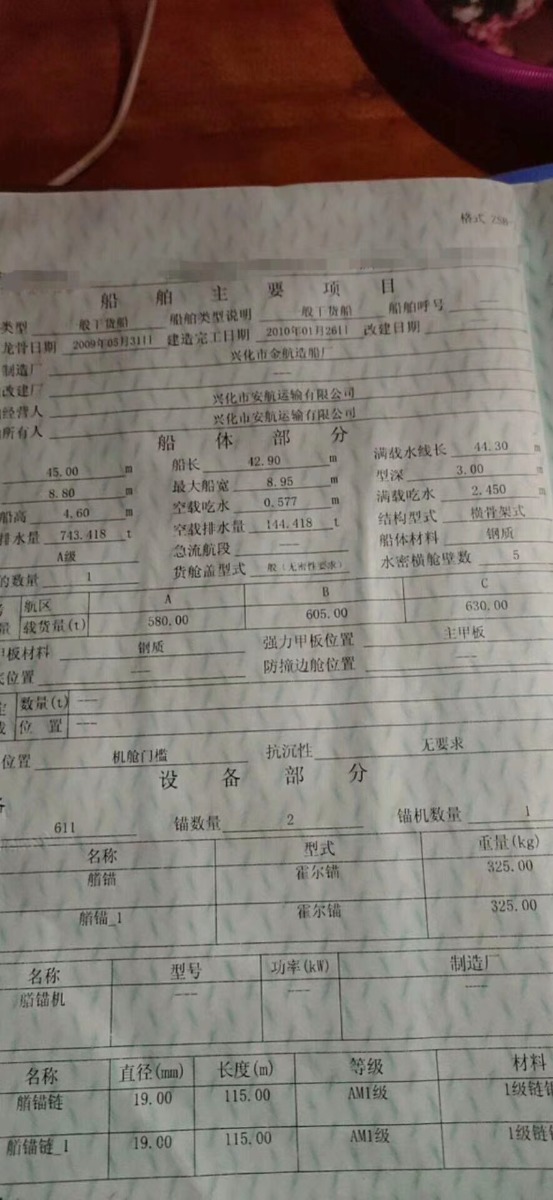 格式 25B
船 舶 主 要 项 目
类型 一般干货船 船舶类型说明 一般干货船 船舶呼号
龙骨日期 2009年05月31日 建造完工日期 2010年01月26日 改建日期
制造厂 兴化市金航造船厂
改建厂 ---
经营人 兴化市安航运输有限公司
所有人 兴化市安航运输有限公司
船 体 部 分
45.00 m 船长 42.90 m 满载水线长 44.30 m
8.80 m 最大船宽 8.95 m 型深 3.00 m
船高 4.60 m 空载吃水 0.577 m 满载吃水 2.450 m
排水量 743.418 t 空载排水量 144.418 t 结构型式 横骨架式
A级 急流航段 --- 船体材料 钢质
的数量 1 货舱盖型式 一般（无密性要求） 水密横舱壁数 5
航区 A B C
量 载货量(t) 580.00 605.00 630.00
甲板材料 钢质 强力甲板位置 主甲板
位置 --- 防撞边舱位置 ---
数量(t) ---
载 位 置 ---
位置 机舱门槛 抗沉性 无要求
设 备 部 分
611 锚数量 2 锚机数量 1
名称 型式 重量(kg)
艏锚 霍尔锚 325.00
艏锚_1 霍尔锚 325.00
名称 型号 功率(kW) 制造厂
艏锚机 --- --- ---
名称 直径(mm) 长度(m) 等级 材料
艏锚链 19.00 115.00 AM1级 1级链钢
艏锚链_1 19.00 115.00 AM1级 1级链钢